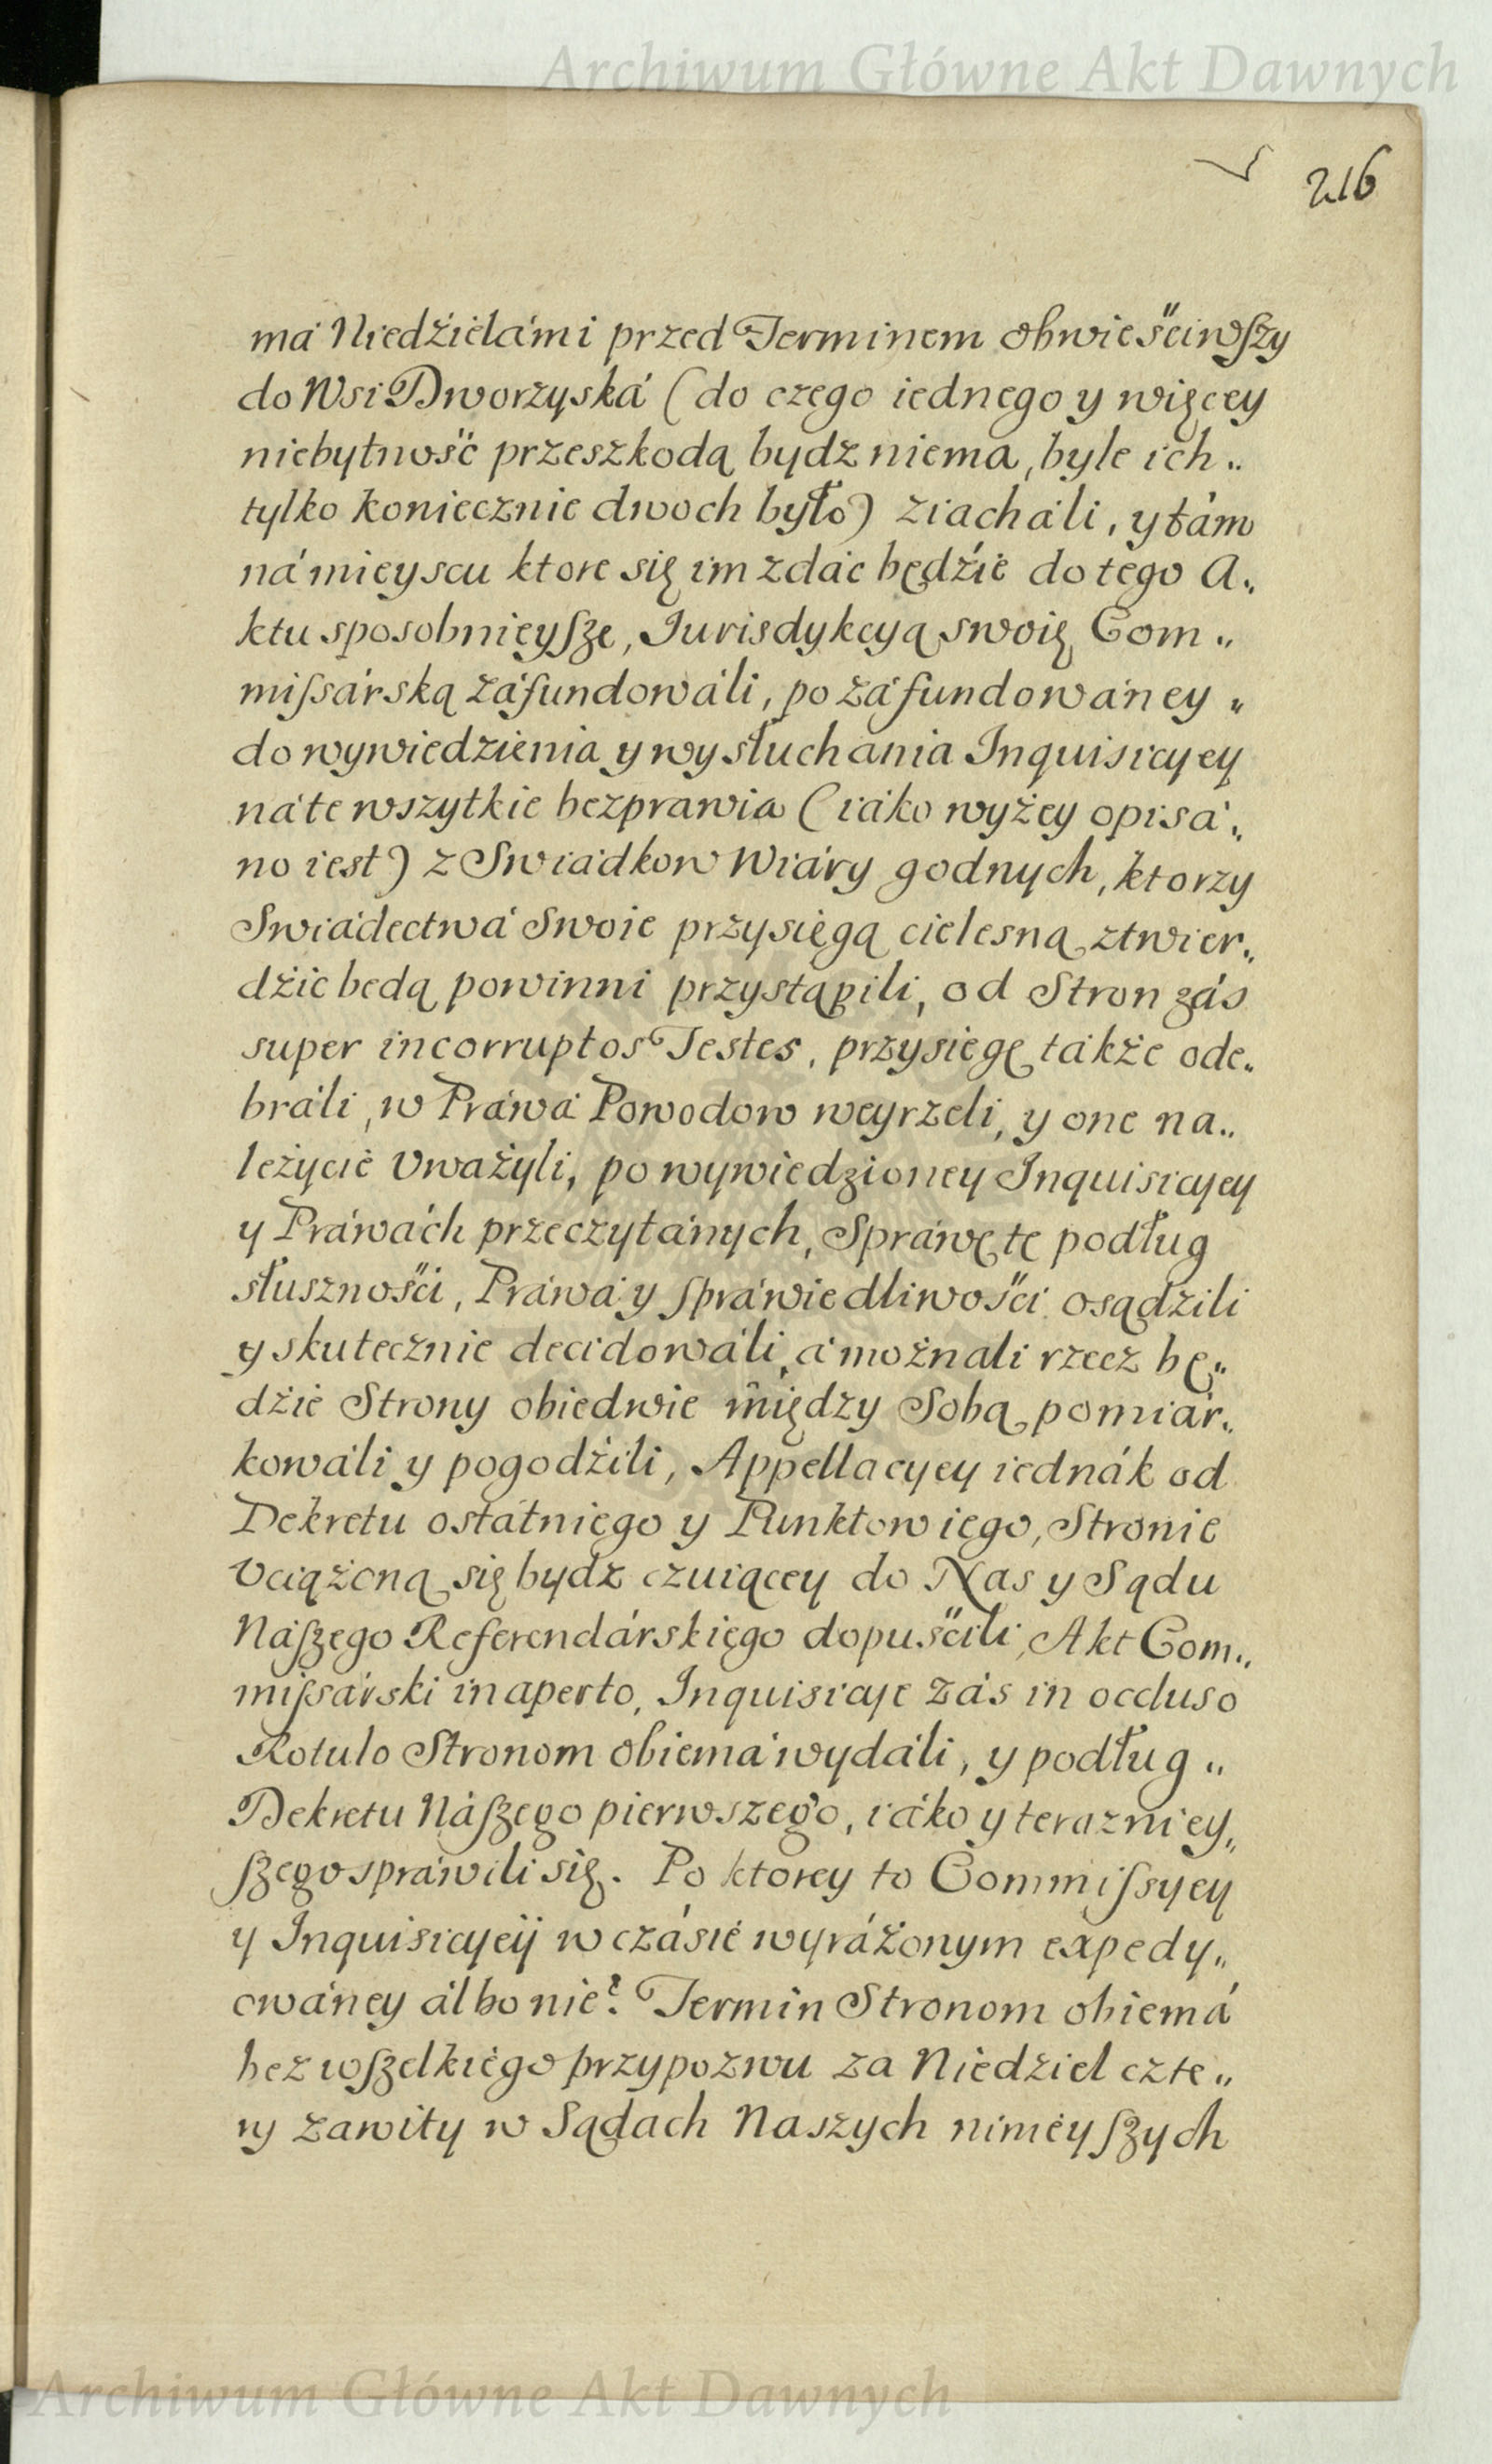 Archiwum Główne Akt Dawnych
216
má Niedźielámi przed Terminem obwieśćiwszy
do Wsi Dworzyská (do czego iednego y więcey
niebytność przeszkodą bydz niema, byle ich „
tylko koniecznie dwoch było) ziacháli, y tám
ná mieyscu ktore się im zdać będźie do tego A„
ktu sposobnieysze, Iurisdykcyą swoię Com „
missárską záfundowáli, po záfundowáney „
do wywiedzienia y wysłuchania Inquisicyey
ná te wszytkie bezprawia (iáko wyżey opisá„
no iest) z Swiádkow Wiáry godnych, ktorzy
Swiádectwá Swoie przysięgą cielesną ztwier„
dźić bedą powinni przystąpili, od Stron zás
super incorruptos Testes, przysięgę tákże ode„
bráli, w Práwá Powodow weyrzeli, y one na„
leżyćie Vważyli, po wywiedzioney Inquisicyey
y Práwách przeczytánych, Spráwę tę podług
słusznośći, Práwá y spráwiedliwośći osądzili
y skutecznie decidowáli, á możnali rzecz bę„
dźie Strony obiedwie między Sobą pomiár„
kowáli y pogodźili, Appellacyey iednák od
Dekretu ostátniego y Punktow iego, Stronie
Vciążoną się bydz czuiącey do Nas y Sądu
Nászego Referendárskiego dopuśćili, Akt Com„
missárski in aperto, Inquisicye zás in occluso
Rotulo Stronom obiemá wydáli, y podług „
Dekretu Nászego pierwszego, iáko y terazniey„
szego spráwili się. Po ktorey to Commissyey
y Inquisicyey w czásie wyráżonym expedy„
owáney álbo nie? Termin Stronom obiemá
bez wszelkiego przypozwu za Niedziel czte„
ry zawity w Sądach Naszych ninieyszych
Archiwum Główne Akt Dawnych